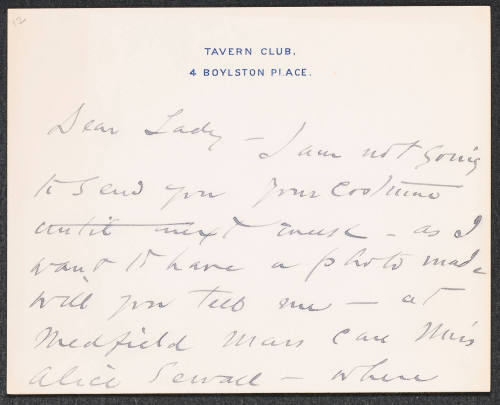 12
TAVERN CLUB.
4 BOYLSTON PLACE.
Dear Lady - I am not going
to send you your
until next week - as I
want to have a photo made
will you tell me - at
Medfield Mass care Miss
Alice Sewall - where